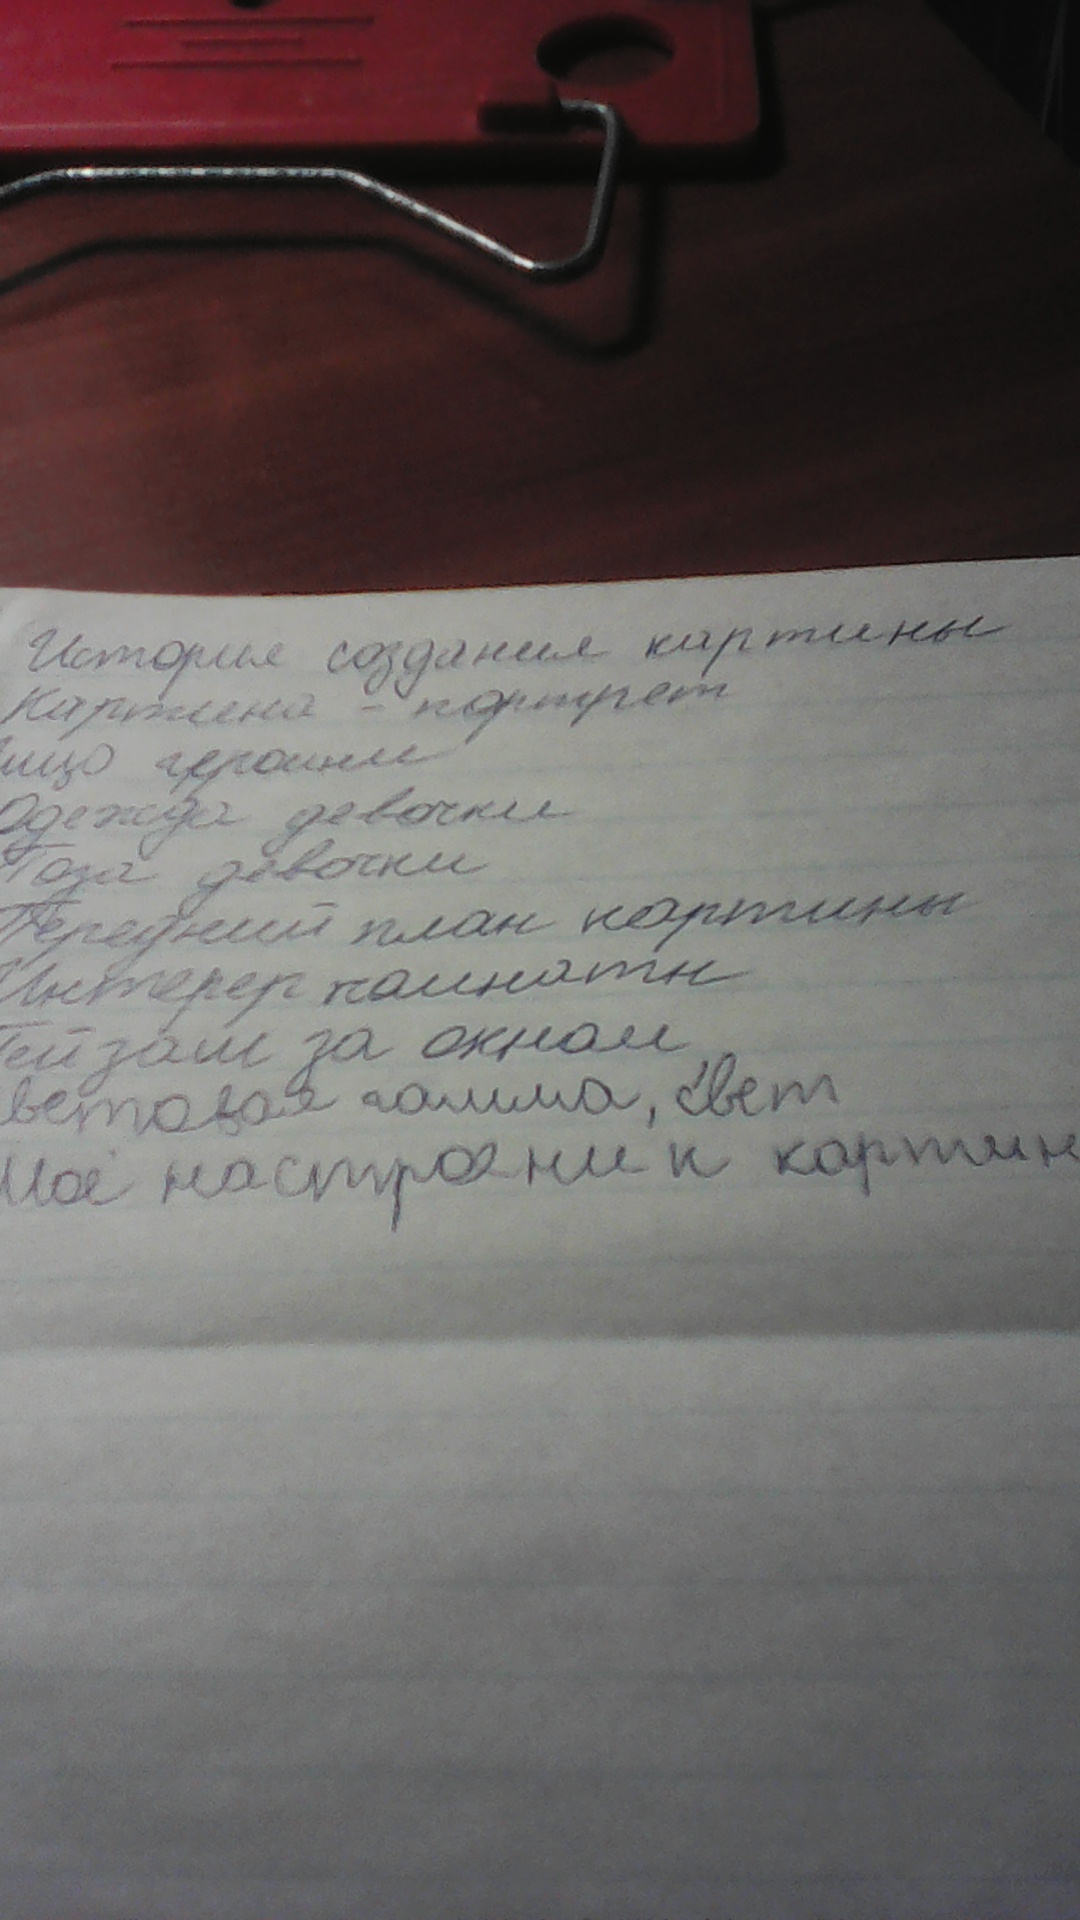 История создания картины
Картина - портрет
Лицо героини
Одежда девочки
Поза девочки
Передний план картины
Интерер комнаты
Пейзаж за окном
ветовая гамма, свет
Моё настроени к картин